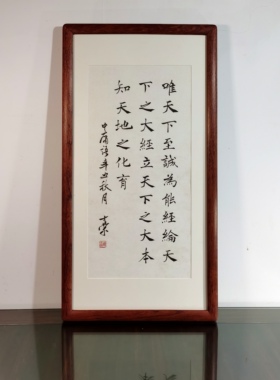 唯天下至誠為能經綸天
下之大經立天下之大本
知天地之化育
中庸語辛丑秋月